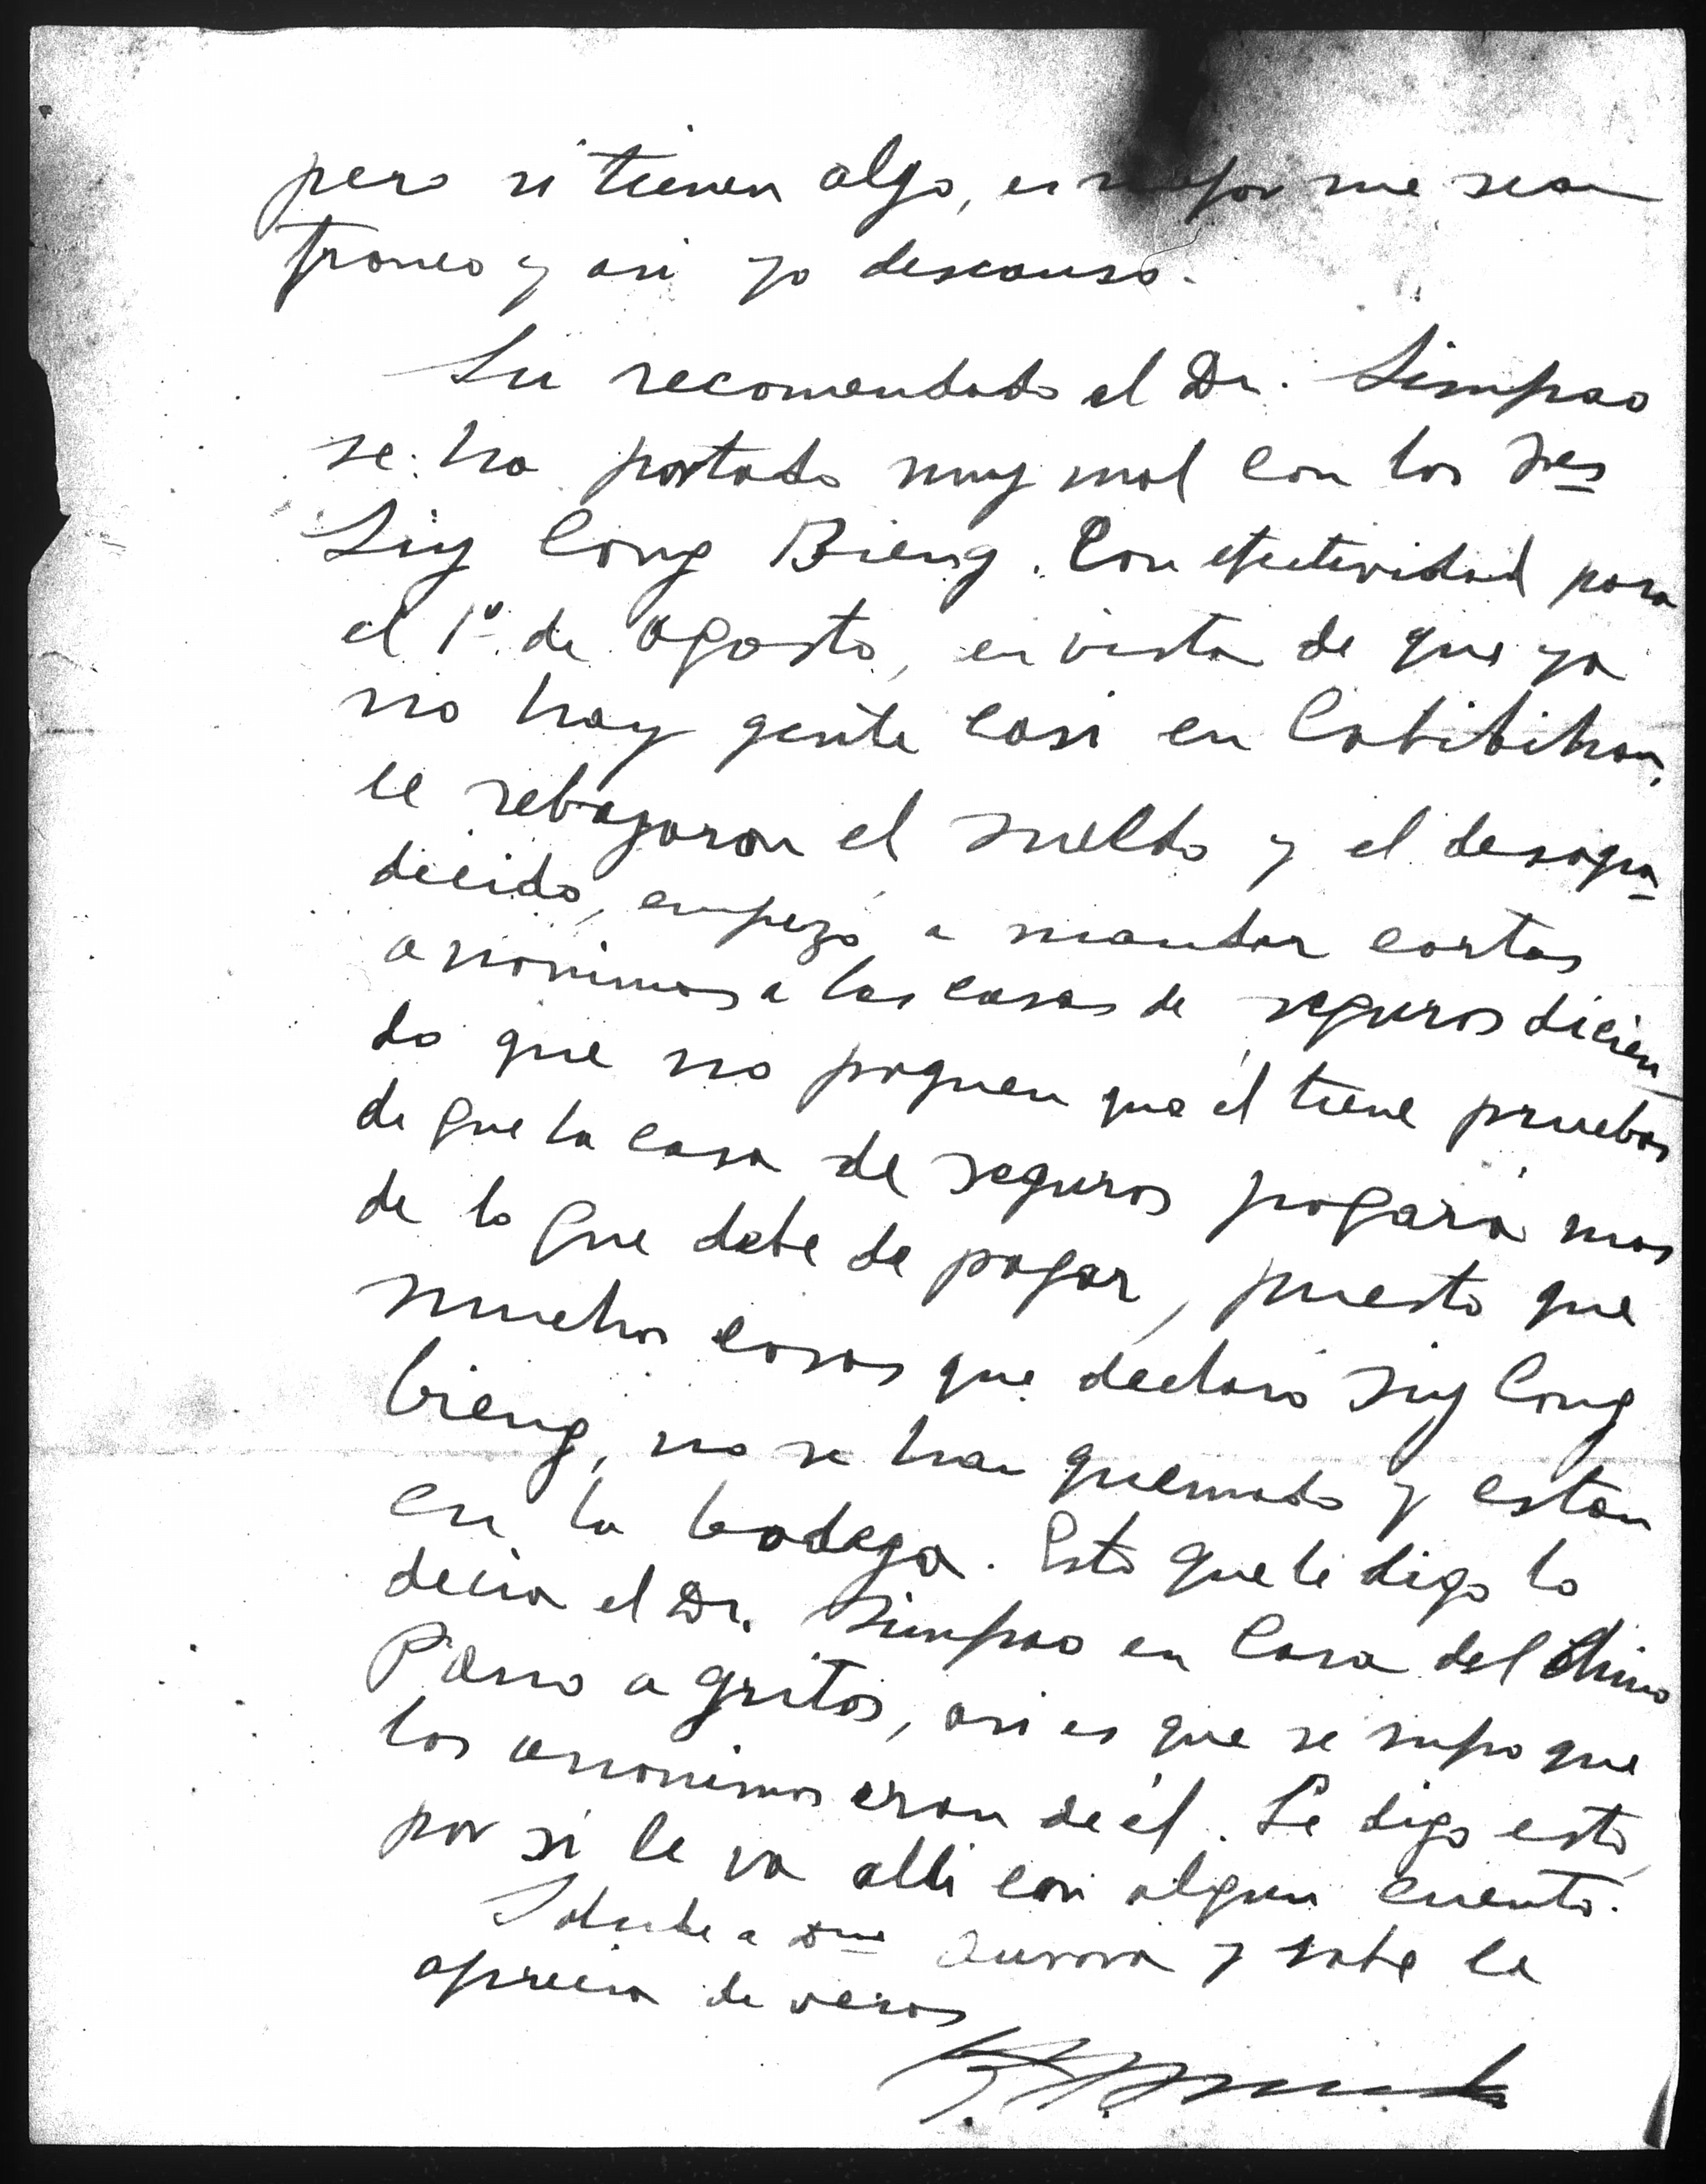 pero si tienen algo, es mejor me sean
franco y asi yo descanso.
Su recomendado el Dr. Simpao
se ha portado muy mal con los Sres
Siy Cong Bieng. Con efectividad para
el 1º de agosto, en vista de que ya
no hay gente casi en Cabibihan,
le rebajaron el sueldo y el desagra-
decido, empezó a mandar cartas
anonimas a las casas de seguros dicien-
do que no paguen que él tiene pruebas
de que la casa de seguros pagará mas
de lo que debe de pagar, puesto que
muchas cosas que declaró Siy Cong
bieng, no se han quemado y estan
en la bodega. Esto que le digo lo
decia el Dr. Simpao en casa del chino
a gritos, asi es que se supo que
los anonimos eran de él. Le digo esto,
por si le va alli con algun cuento.
Salude a Dña Aurora y sabe le
aprecia de veras